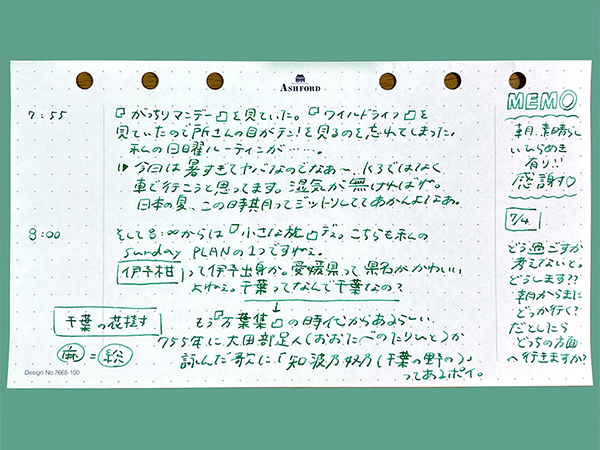 ASHFORD
7:55
『がっちりマンデー』を見ていた。『ワイルドライフ』を
見ていたので所さんの目がテン!を見るのを、忘れてしまった!
私の日曜ルーティンが……。
今回は暑すぎてヤバなのでなぁ〜、K3ではなく
車で行こうと思ってます。湿気が無ければなぁ。
日本の夏、この時期って ジットリしててあかんよなぁ。
8:00
そして8:00からは『小さな旅』デス。こちらも私の
Sunday PLANの1つですねぇ。
伊予柑って伊予出身か。愛媛県って県名がかわいい
よねぇ。千葉ってなんで千葉なの?
↓
もう『万葉集』の時代からあるらしい。
755年に大田部足人(おおたべのたりひと)が
詠んだ歌に「知波乃奴乃(千葉の野の)」
ってあるポイ。
千葉の花挿す
麻=総
Design No.7665-100
MEMO
朝、素晴らし
いひらめき
有り!!
感謝す♡
7/4
どう過ごすか
考えてないと。
どうします??
朝からまた
どっか行く?
だとしたら
どっちの方面
へ行きますか?